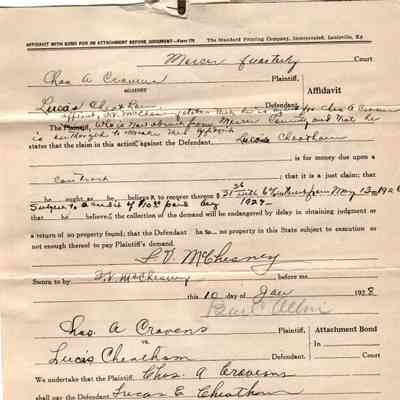 AFFIDAVIT WITH BOND FOR AN ATTACHMENT BEFORE JUDGMENT—Form 179 The Standard Printing Company, Incorporated, Louisville, Ky
Mercer Quarterly Court
Chas A Cravens Plaintiff,
AGAINST Affidavit
Lucas Cheatham Defendant
Affiant, F.V. McChesney states that he is for Chas A Cravens
The Plaintiff, who is now absent from Mercer County and that he
is authorized to make this affidavit
states that the claim in this action against the Defendant Lucas Cheatham
is for money due upon a
contract ; that it is a just claim; that
he ought as he believes to recover thereon $31 56 with 6% from May 13 192
Subject to a credit of $10 paid Aug 1927
that he believes the collection of the demand will be endangered by delay in obtaining judgment or
a return of no property found; that the Defendant ha s no property in this State subject to execution or
not enough thereof to pay Plaintiff's demand.
F.V. McChesney
Sworn to by F.V. McChesney before me
this 10 day of Jan 1928
Chas. A Cravens Plaintiff, Attachment Bond
vs.
Lucas Cheatham Defendant. In
Court
We undertake that the Plaintiff, Chas. A Cravens
shall pay the Defendant, Lucas E Cheatham